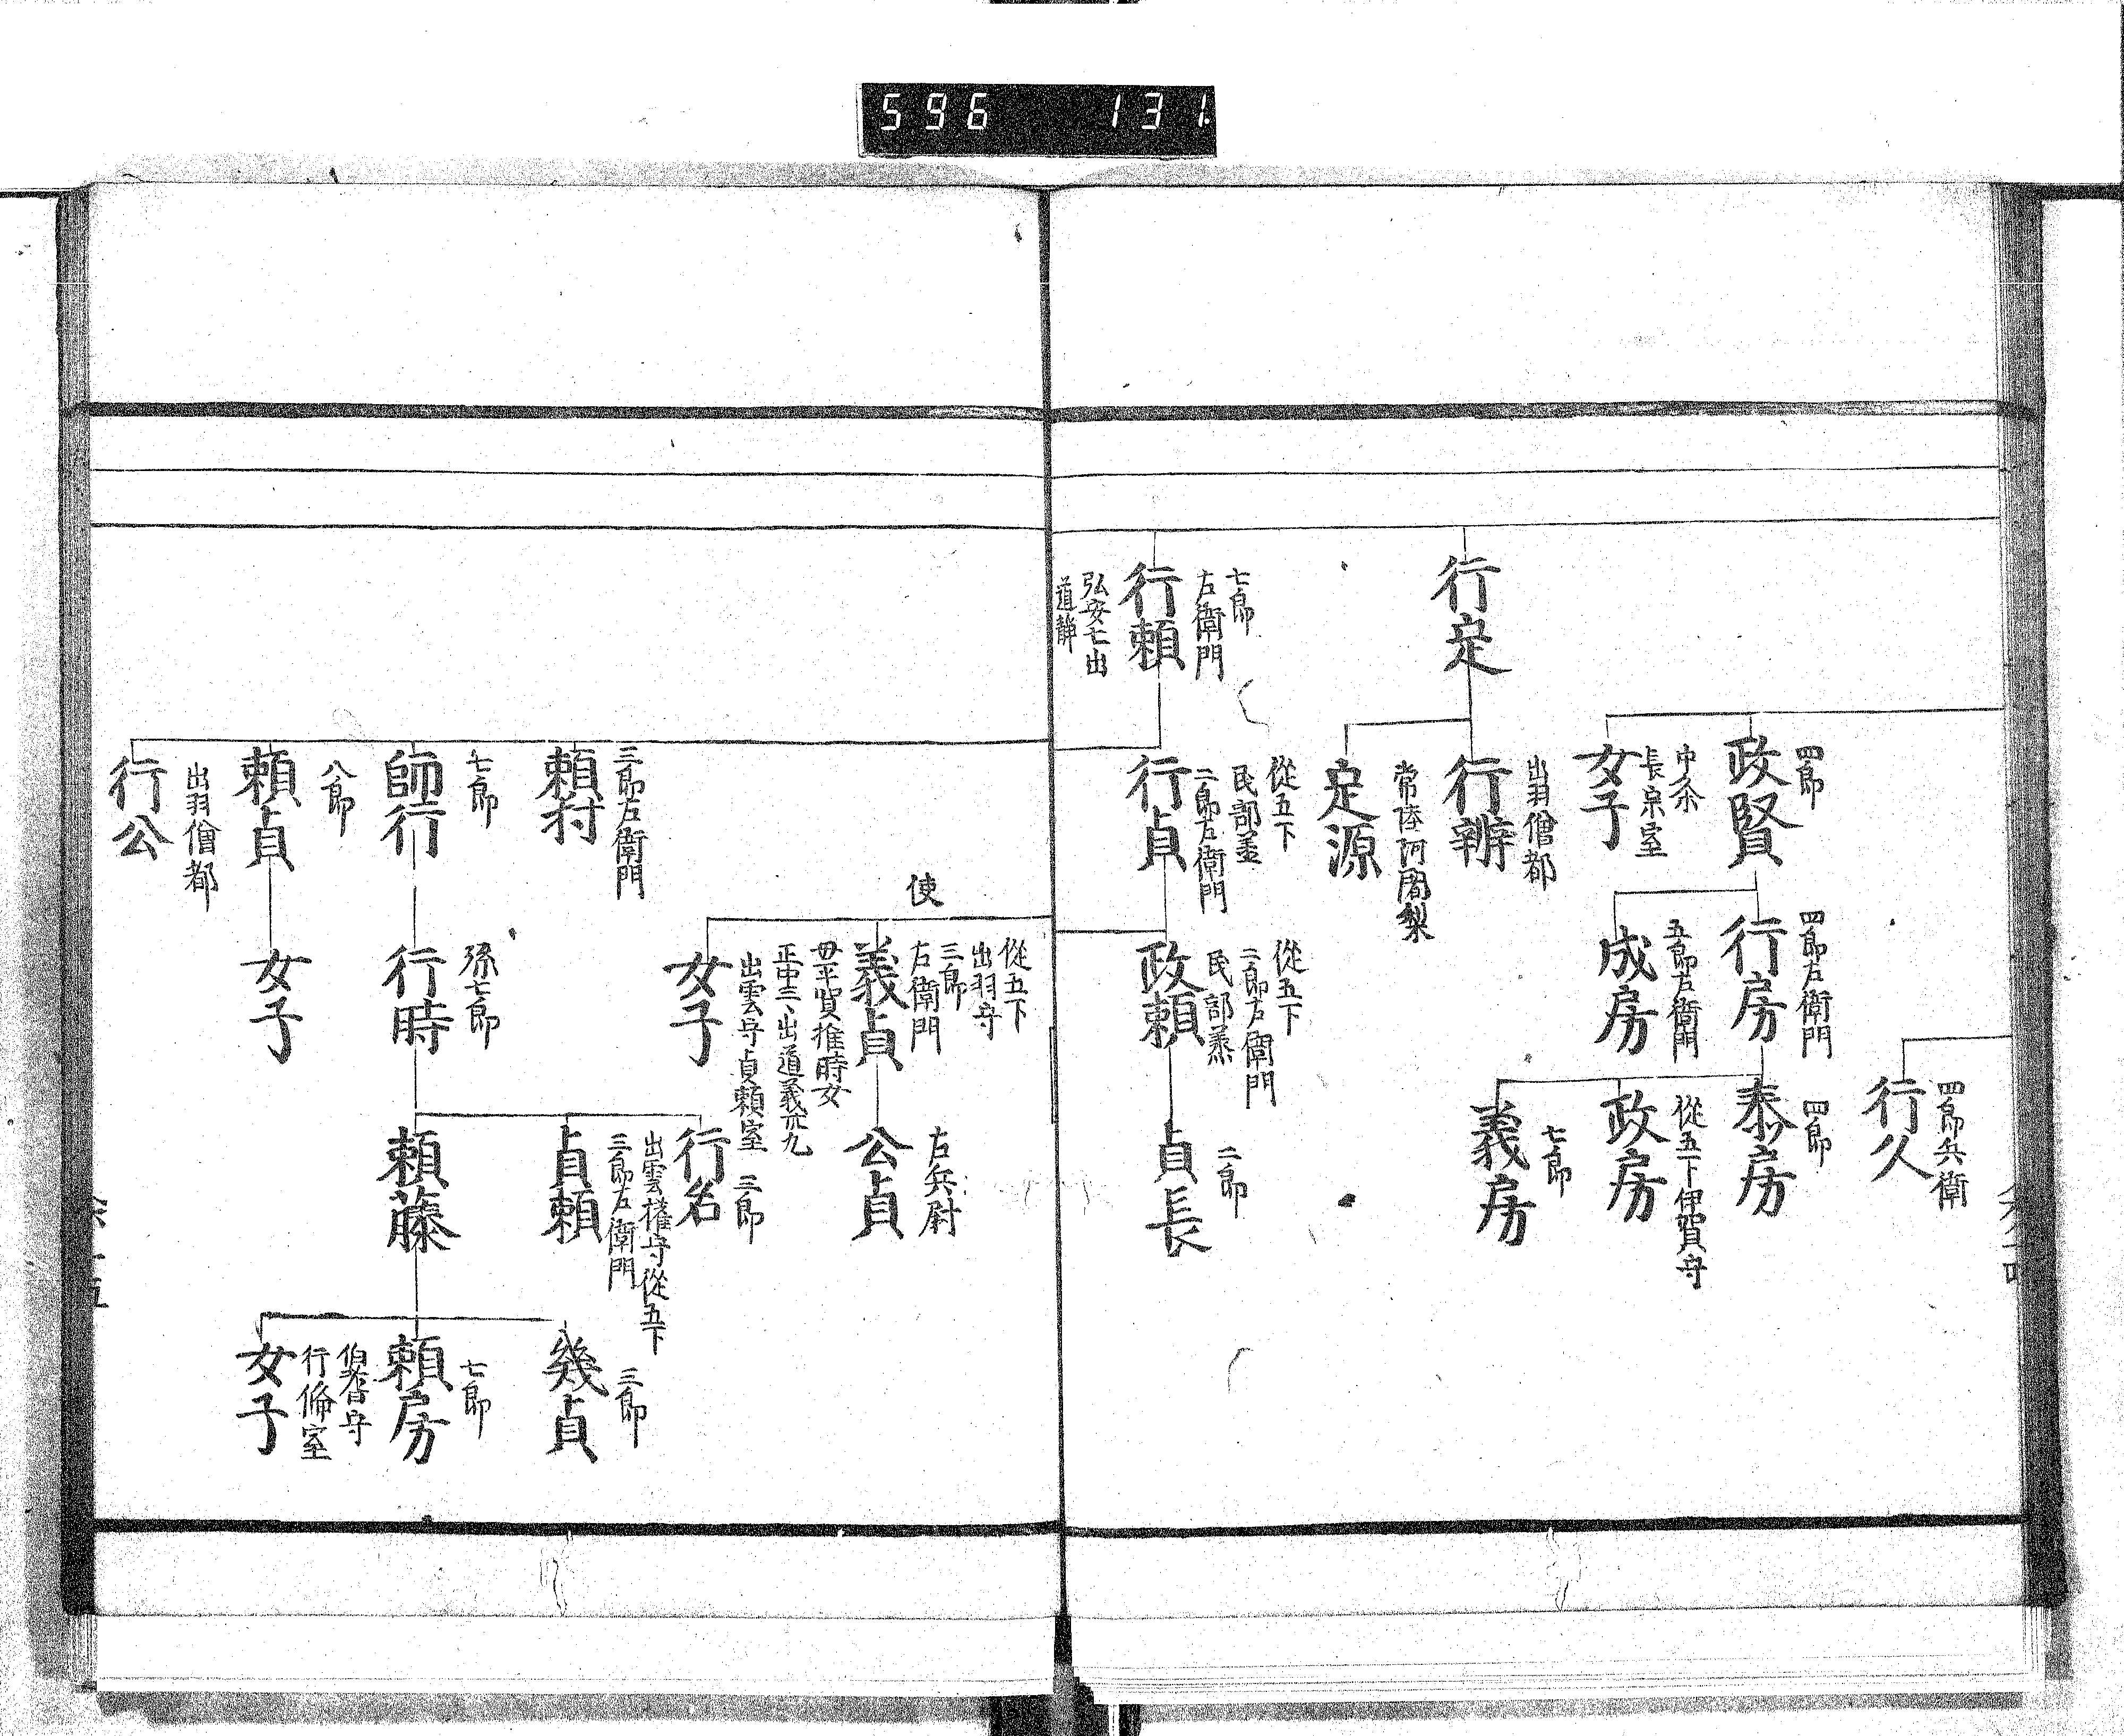 596 131
四郎兵衛
行久
四郎
政賢
四郎左衛門
行房
四郎
泰房
中条
長宗室
女子
五郎左衛門
成房
從五下伊賀守
政房
七郎
義房
行定
出羽僧都
行辨
常陸阿闍梨
定源
七郎
左衛門
行頼
弘安七出
道静
從五下
民部丞
二郎左衛門
行貞
從五下
二郎左衛門
民部丞
政頼
二郎
貞長
使
從五下
出羽守
三郎
左衛門
義貞
母平賀惟時女
正中三、出道義
左兵尉
公貞
出雲守貞頼室
女子
三郎左衛門
頼村
七郎
師行
孫七郎
行時
二郎
行名
出雲権守從五下
三郎左衛門
貞頼
頼藤
三郎
幾貞
七郎
頼房
伯耆守
行脩室
女子
八郎
頼貞
女子
出羽僧都
行公